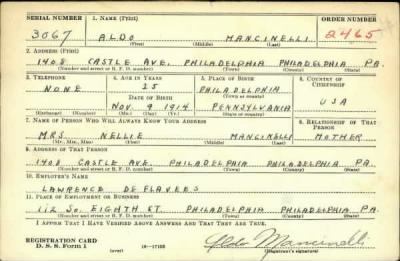 SERIAL NUMBER 1. NAME (Print) ORDER NUMBER
3067 ALDO MANCINELLI 2465
(First) (Middle) (Last)
2. ADDRESS (Print)
1408 CASTLE AVE. PHILADELPHIA PHILADELPHIA PA.
(Number and street or R. F. D. number) (Town) (County) (State)
3. TELEPHONE 4. AGE IN YEARS 5. PLACE OF BIRTH 6. COUNTRY OF CITIZENSHIP
NONE 25 PHILADELPHIA
DATE OF BIRTH (Town or county)
NOV. 9 1914 PENNSYLVANIA USA
(Exchange) (Number) (Mo.) (Day) (Yr.) (State or country)
7. NAME OF PERSON WHO WILL ALWAYS KNOW YOUR ADDRESS 8. RELATIONSHIP OF THAT PERSON
MRS NELLIE MANCINELLI MOTHER
(Mr., Mrs., Miss) (First) (Middle) (Last)
9. ADDRESS OF THAT PERSON
1408 CASTLE AVE. PHILADELPHIA PHILADELPHIA PA.
(Number and street or R. F. D. number) (Town) (County) (State)
10. EMPLOYER'S NAME
LAWRENCE
11. PLACE OF EMPLOYMENT OR BUSINESS
112 SO. EIGHTH ST. PHILADELPHIA PHILADELPHIA PA.
(Number and street or R. F. D. number) (Town) (County) (State)
I AFFIRM THAT I HAVE VERIFIED ABOVE ANSWERS AND THAT THEY ARE TRUE.
REGISTRATION CARD
D. S. S. Form 1 (over) 16—17105 Aldo Mancinelli
(Registrant's signature)